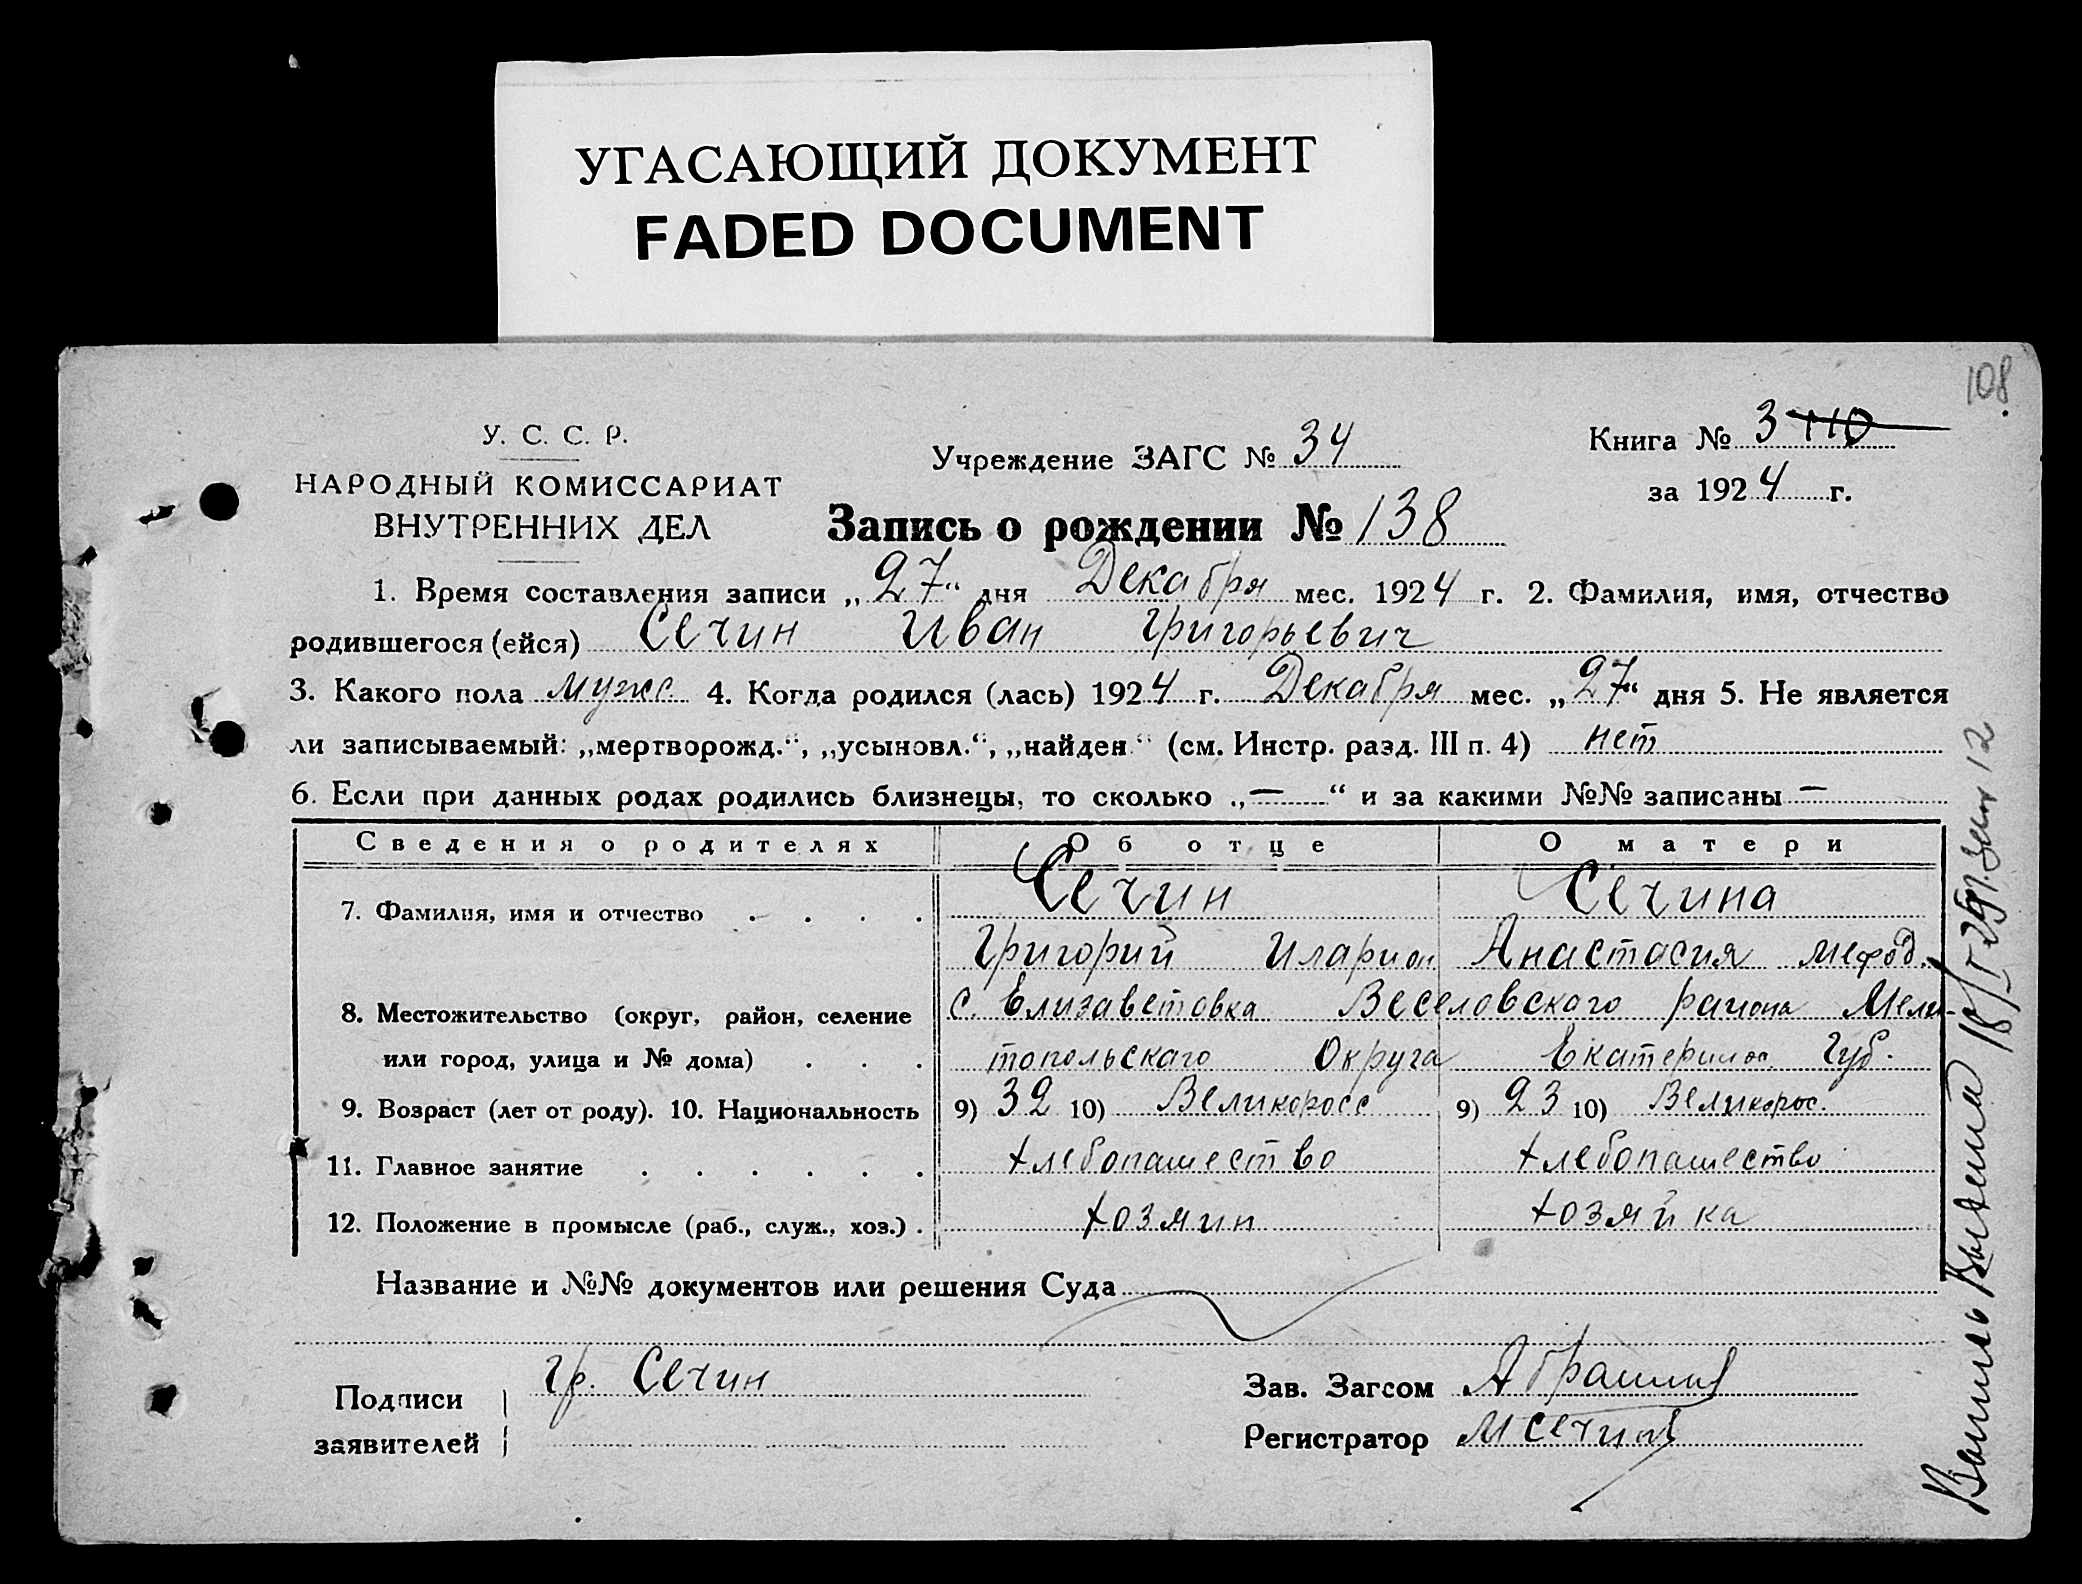 УГАСАЮЩИЙ ДОКУМЕНТ
FADED DOCUMENT
108
У. С. С. Р.
НАРОДНЫЙ КОМИССАРИАТ
ВНУТРЕННИХ ДЕЛ
Учреждение ЗАГС № 34
Книга № 3 110
за 1924 г.
Запись о рождении № 138
1. Время составления записи „27“ дня Декабря мес. 1924 г. 2. Фамилия, имя, отчество
родившегося (ейся) Сечин Иван Григорьевич
3. Какого пола мужс. 4. Когда родился (лась) 1924 г. Декабря мес. „27“ дня 5. Не является
ли записываемый: „мертворожд.“, „усыновл.“, „найден.“ (см. Инстр. разд. III п. 4) нет
6. Если при данных родах родились близнецы, то сколько „—“ и за какими №№ записаны —
Сведения о родителях Об отце О матери
7. Фамилия, имя и отчество . . . . Сечин Сечина
Григорий Иларион Анастасия Мефод.
8. Местожительство (округ, район, селение с. Елизаветовка Веселовского района Мели-
или город, улица и № дома) . . . топольского Округа Екатеринос. Губ.
9. Возраст (лет от роду). 10. Национальность 9) 32 10) Великоросс 9) 23 10) Великорос.
11. Главное занятие . . . . . . хлебопашество хлебопашество
12. Положение в промысле (раб., служ., хоз.) . хозяин хозяйка
Название и №№ документов или решения Суда
Подписи Гр. Сечин
заявителей
Зав. Загсом
Регистратор М Сечин